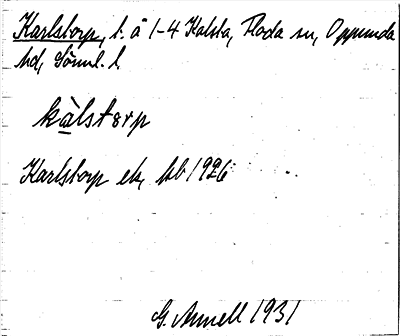 Karlstorp, t. å 1-4 Kalsta, Floda sn, Oppunda
hd, Sörml. l.
kàlstørp
Karlstorp ek, hb 1926
G. Annell 1931